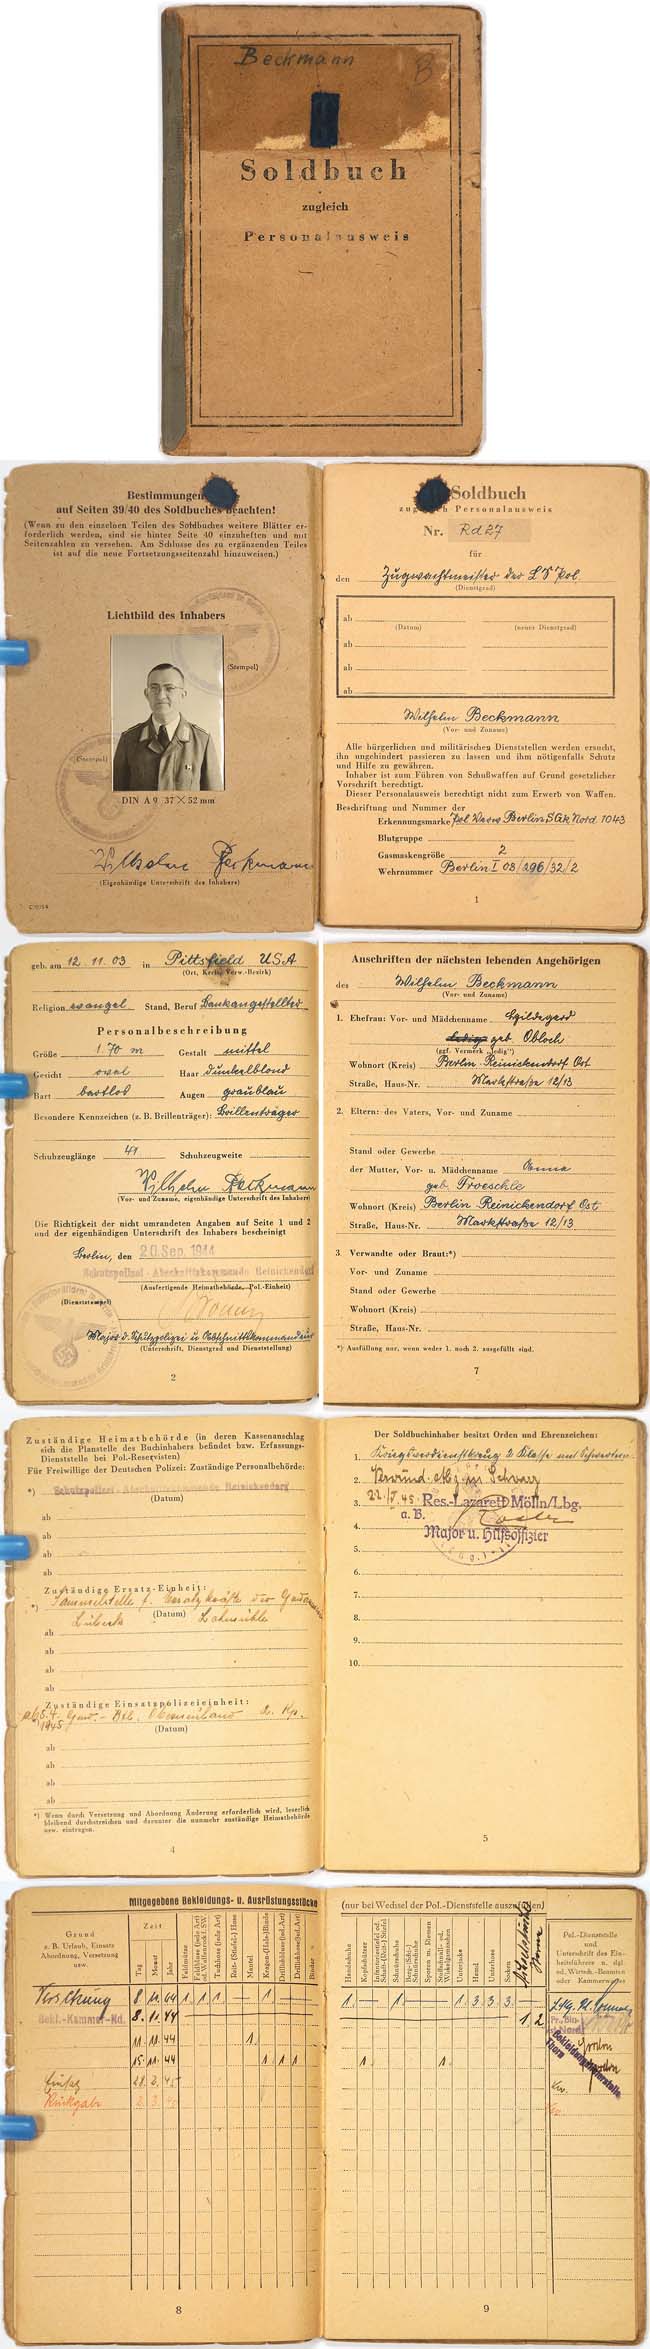 Beckmann
B
Soldbuch
zugleich
Personalausweis
Bestimmungen
auf Seiten 39/40 des Soldbuches beachten!
(Wenn zu den einzelnen Teilen des Soldbuches weitere Blätter er-
forderlich werden, sind sie hinter Seite 40 einzuheften und mit
Seitenzahlen zu versehen. Am Schlusse des zu ergänzenden Teiles
ist auf die neue Fortsetzungsseitenzahl hinzuweisen.)
Lichtbild des Inhabers
(Stempel)
(Stempel)
DIN A 9 37×52 mm
Wilhelm Beckmann
(Eigenhändige Unterschrift des Inhabers)
Soldbuch
zugleich Personalausweis
Nr. Rd 27
für
den Zugwachtmeister der LS Pol.
(Dienstgrad)
ab
(Datum) (neuer Dienstgrad)
ab
ab
ab
Wilhelm Beckmann
(Vor- und Zuname)
Alle bürgerlichen und militärischen Dienststellen werden ersucht,
ihn ungehindert passieren zu lassen und ihm nötigenfalls Schutz
und Hilfe zu gewähren.
Inhaber ist zum Führen von Schußwaffen auf Grund gesetzlicher
Vorschrift berechtigt.
Dieser Personalausweis berechtigt nicht zum Erwerb von Waffen.
Beschriftung und Nummer der
Erkennungsmarke Pol. Verw. Berlin S.Gk Nord. 1043
Blutgruppe
Gasmaskengröße 2
Wehrnummer Berlin I 03/296/32/2
1
geb. am 12.11.03 in Pittsfield USA
(Ort, Kreis, Verw.-Bezirk)
Religion evangel Stand, Beruf Bankangestellter
Personalbeschreibung
Größe 1.70 m Gestalt mittel
Gesicht oval Haar dunkelblond
Bart bartlos Augen graublau
Besondere Kennzeichen (z. B. Brillenträger): Brillenträger
Schuhzeuglänge 41 Schuhzeugweite
Wilhelm Beckmann
(Vor- und Zuname, eigenhändige Unterschrift des Inhabers)
Die Richtigkeit der nicht umrandeten Angaben auf Seite 1 und 2
und der eigenhändigen Unterschrift des Inhabers bescheinigt
Berlin, den 20. Sep. 1944
Schutzpolizei - Abschnittskommando Reinickendorf
(Ausfertigende Heimatbehörde, Pol.-Einheit)
(Dienststempel)
Major d. Schutzpolizei u Abschnittskommandeur
(Unterschrift, Dienstgrad und Dienststellung)
2
Anschriften der nächsten lebenden Angehörigen
des Wilhelm Beckmann
(Vor- und Zuname)
1. Ehefrau: Vor- und Mädchenname Hildegard
ledig geb. Obloch
(ggf. Vermerk „ledig")
Wohnort (Kreis) Berlin Reinickendorf Ost
Straße, Haus-Nr. Markstraße 12/13
2. Eltern: des Vaters, Vor- und Zuname
Stand oder Gewerbe
der Mutter, Vor- u. Mädchenname Anna
geb. Troeschle
Wohnort (Kreis) Berlin Reinickendorf Ost
Straße, Haus-Nr. Markstraße 12/13
3 Verwandte oder Braut:*)
Vor- und Zuname
Stand oder Gewerbe
Wohnort (Kreis)
Straße, Haus-Nr.
*) Ausfüllung nur, wenn weder 1. noch 2. ausgefüllt sind.
7
Zuständige Heimatbehörde (in deren Kassenanschlag
sich die Planstelle des Buchinhabers befindet bzw. Erfassungs-
Dienststelle bei Pol.-Reservisten)
Für Freiwillige der Deutschen Polizei: Zuständige Personalbehörde:
*) Schutzpolizei Abschnittskommando Reinickendorf
(Datum)
ab
ab
ab
ab
Zuständige Ersatz-Einheit:
*) Sammelstelle f. Ersatzkräfte der
Lübeck (Datum) Lohmühle
ab
ab
ab
Zuständige Einsatzpolizeieinheit:
ab 5.4. Gend.- Btl. 2. Kp.
1945 (Datum)
ab
ab
ab
*) Wenn durch Versetzung und Abordnung Änderung erforderlich wird, leserlich
bleibend durchstreichen und darunter die nunmehr zuständige Heimatbehörde
usw. eintragen.
4
Der Soldbuchinhaber besitzt Orden und Ehrenzeichen:
1. Kriegsverdienstkreuz 2 Klasse mit Schwertern
2. Verwund. Abz. in Schwarz
3. 22./5. 45. Res.-Lazarett Mölln/Lbg.
a. B.
4. Major u. Hilfsoffizier
5.
6.
7.
8.
9.
10.
5
Mitgegebene Bekleidungs- u. Ausrüstungsstücke
Grund
z. B. Urlaub, Einsatz
Abordnung, Versetzung
usw.
Zeit
Tag Monat Jahr
Feldmütze
Tuchhose (jede Art)
Reit- (Stiefel-) Hose
Mantel
Kragen-(Hals-)Binde
Drillichbluse (jed. Art)
Drillichhose (jed. Art)
Versetzung 8. 11. 44 1 1 1 — — 1
Bekl.-Kammer-Nd. 8. 11. 44
11. 11. 44 1
15. 11. 44 1 1 1
Einsatz 28. 2. 45
Rückgabe 2. 3. 45
8
(nur bei Wechsel der Pol.-Dienststelle auszufüllen)
Handschuhe
Kopfschützer
Schnürschuhe
Sporen m. Riemen
Unterjacke
Hemd
Unterhose
Socken
Pol.-Dienststelle
und
Unterschrift des Ein-
heitsführers u. dgl.
od. Wirtsch.-Beamten
oder Kammerwartes
1 — — 1 — — — 1 3 3 3
1 2
1 1
Bekleidungslieferstelle
Thorn
9